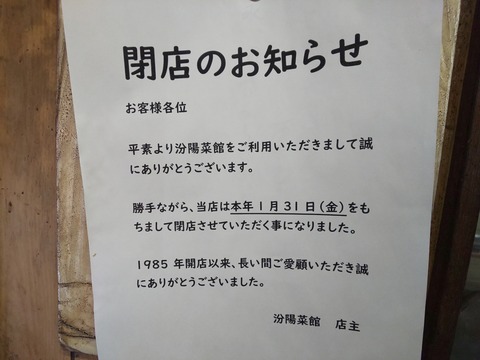 閉店のお知らせ
お客様各位
平素より汾陽菜館をご利用いただきまして誠
にありがとうございます。
勝手ながら、当店は本年1月31日(金)をも
ちまして閉店させていただく事になりました。
1985年開店以来、長い間ご愛顧いただき誠
にありがとうございました。
汾陽菜館　店主